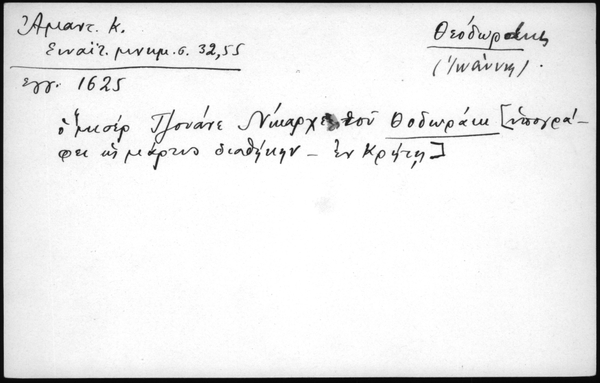 Ἀμαντ. Κ.
Σιναϊτ. μνημ. σ. 32,55
Θεόδωράκης
(Ἰωάννης).
ἔγγ. 1625
ὁ μισέρ Τζουάνε Νίκαρχε τοῦ Θοδωράκι [ὑπογρά-
φει ὡς μάρτυς διαθήκην – ἐν Κρήτῃ]